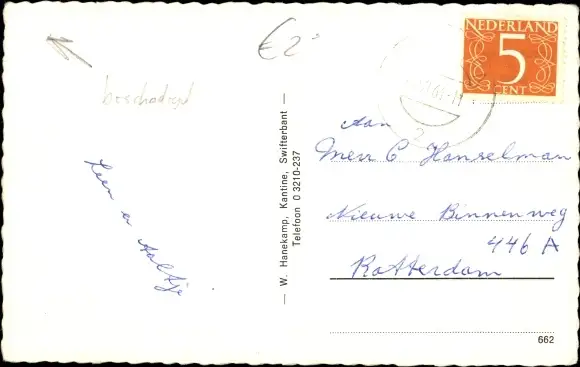 €2
beschadigd
Leen en Aaltje
— W. Hanekamp, Kantine, Swifterbant —
Telefoon 0 3210-237
NEDERLAND
5
CENT
Aan
C Hanselman
Nieuwe Binnenweg
446 A
Rotterdam
662